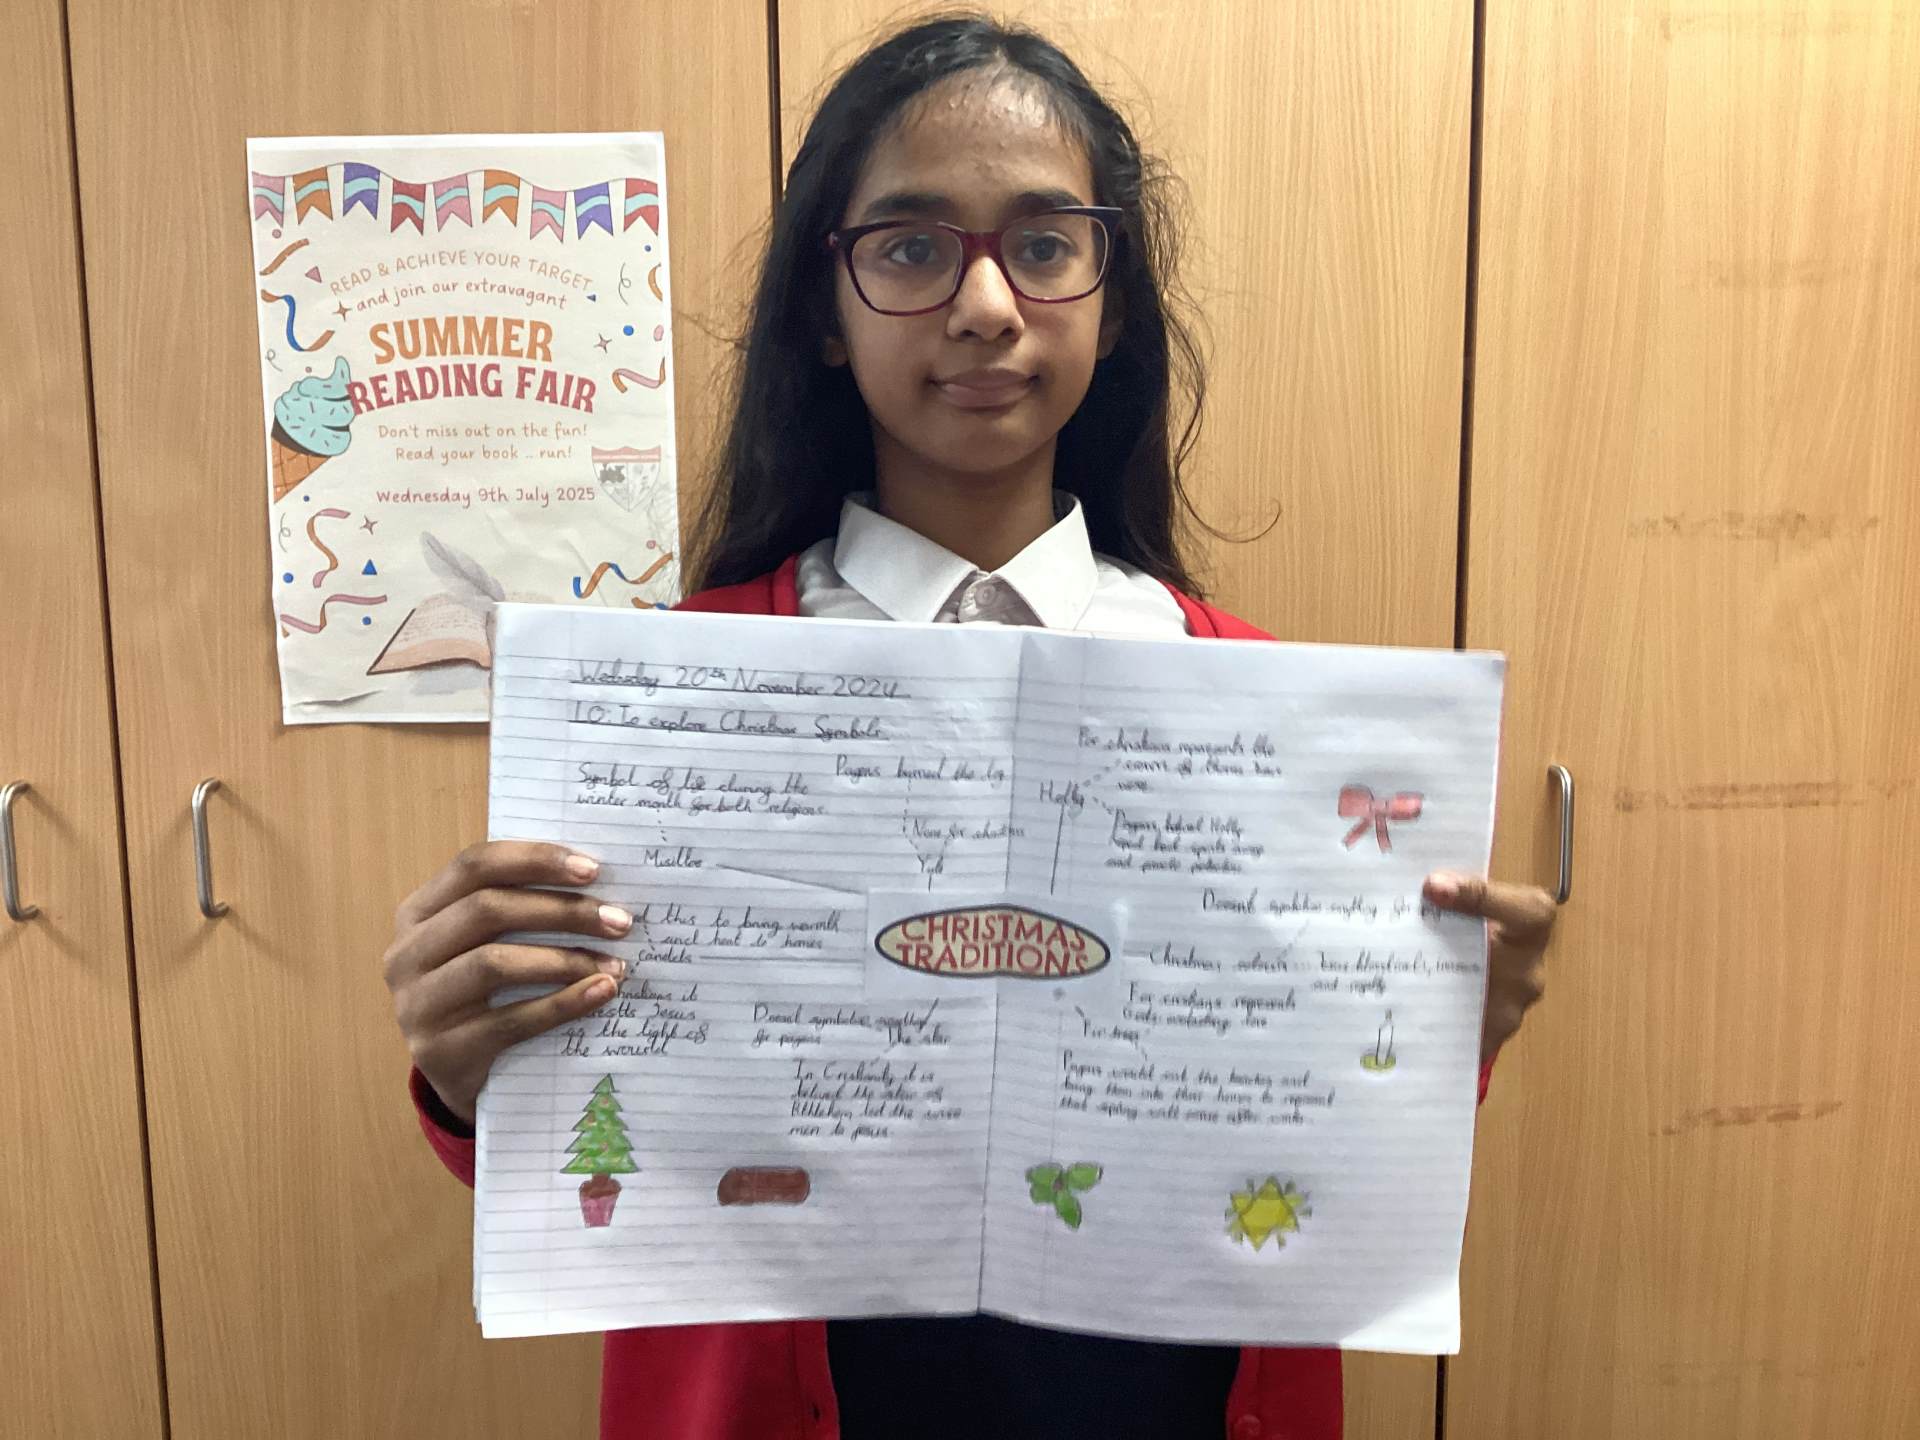 READ & ACHIEVE YOUR TARGET
and join our extravagant
SUMMER
READING FAIR
Don't miss out on the fun!
Read your book ... run!
Wednesday 9th July 2025
Wednesday 20th November 2024
LO: To explore Christmas Symbols.
Symbol of life during the
winter month for both religions.
Pagens burned the log
None for
Yule
this to bring warmth
and heat to homes
candels
it
Jesus
as the light of
the wourld
Doesnt symbolise anything
for pagens
The star
In it is
the star of
led the wise
men to jesus.
CHRISTMAS
TRADITIONS
For represents the
crown of
Holly
Holly
bad spirits away
and
Doesnt anything for
Christmas colours
and royalty
For represents
Gods love
Fir trees
Pagens would cut the and
bring them into their homes to represent
that spring will come after winter.